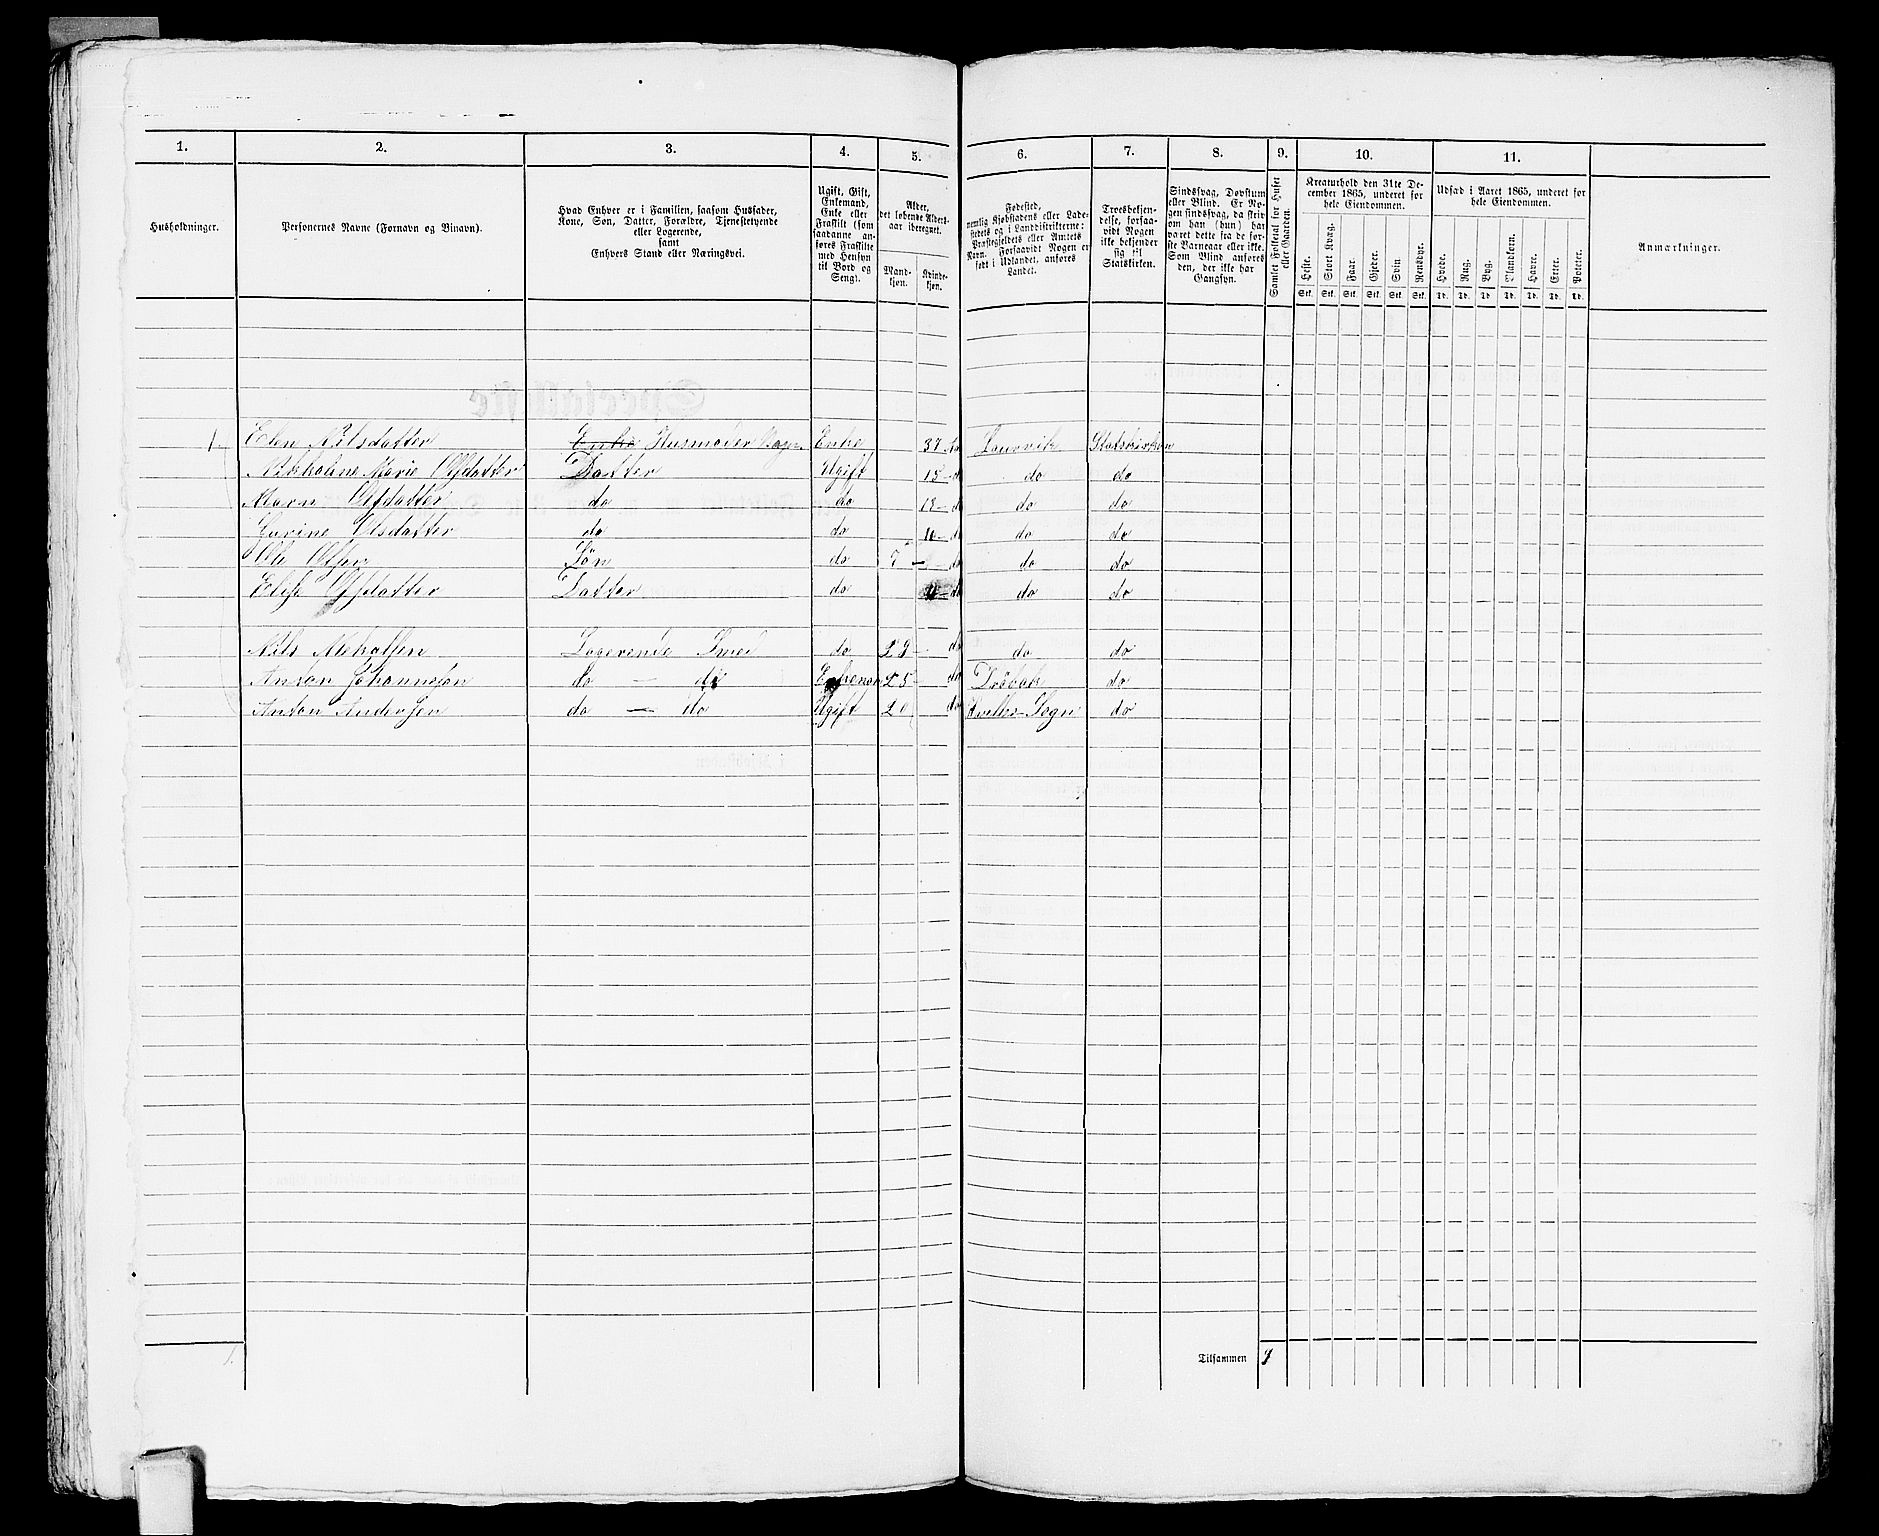 1. 2. 3. 4. 5. 6. 7. 8. 9. 10. 11.
Husholdninger.
Personernes Navne (Fornavn og Binavn).
Hvad Enhver er i Familien, saasom Husfader,
Kone, Søn, Datter, Forældre, Tjenestetyende
eller Logerende,
samt
Enhvers Stand eller Næringsvei.
Ugift, Gift,
Enkemand,
Enke eller
Fraskilt (som
saadanne an-
føres Fraskilte
med Hensyn
til Bord og
Seng).
Alder,
det løbende Alders-
aar iberegnet.
Mand-
kjøn.
Kvinde-
kjøn.
Fødested,
nemlig Kjøbstadens eller Lade-
stedets og i Landdistrikterne:
Præstegjeldets eller Amtets
Navn. Forsaavidt Nogen er
født i Udlandet, anføres
Landet.
Troesbekjen-
delse, forsaa-
vidt Nogen
ikke bekjender
sig til
Statskirken.
Sindssvag, Døvstum
eller Blind. Er No-
gen sindssvag, da skriv
om han (hun) har
været dette fra de før-
ste Barneaar eller ikke.
Som Blind anføres
den, der ikke har
Gangsyn.
Samlet Folketal for Huset
eller Gaarden.
Kreaturhold den 31te De-
cember 1865, underet for
hele Eiendommen.
Heste. Stort Kvæg. Faar. Gjeder. Svin Rensdyr.
Stk. Stk. Stk. Stk. Stk. Stk.
Udsæd i Aaret 1865, underet for
hele Eiendommen.
Hvede. Rug. Byg. Blandkorn. Havre. Erter. Poteter.
Td. Td. Td. Td. Td. Td. Td.
Anmærkninger.
1 Elen Nilsdatter Enke Husmoder Enke 37 Laurvik Statskirken
Marie Olsdatter Datter Ugift 15 do do do
Maren Olsdatter do do 13 do do do
Olsdatter do do 10 do do do
Ole Olsen Søn do 7 do do do
Elise Olsdatter Datter do do do do
Nils Logerende Smed do 29 do do do
Anton Johannesen do — do Enkeman 25 do Drøbak do
Anton Andersen do — do Ugift 20 do Sogn do
1.
Tilsammen 9